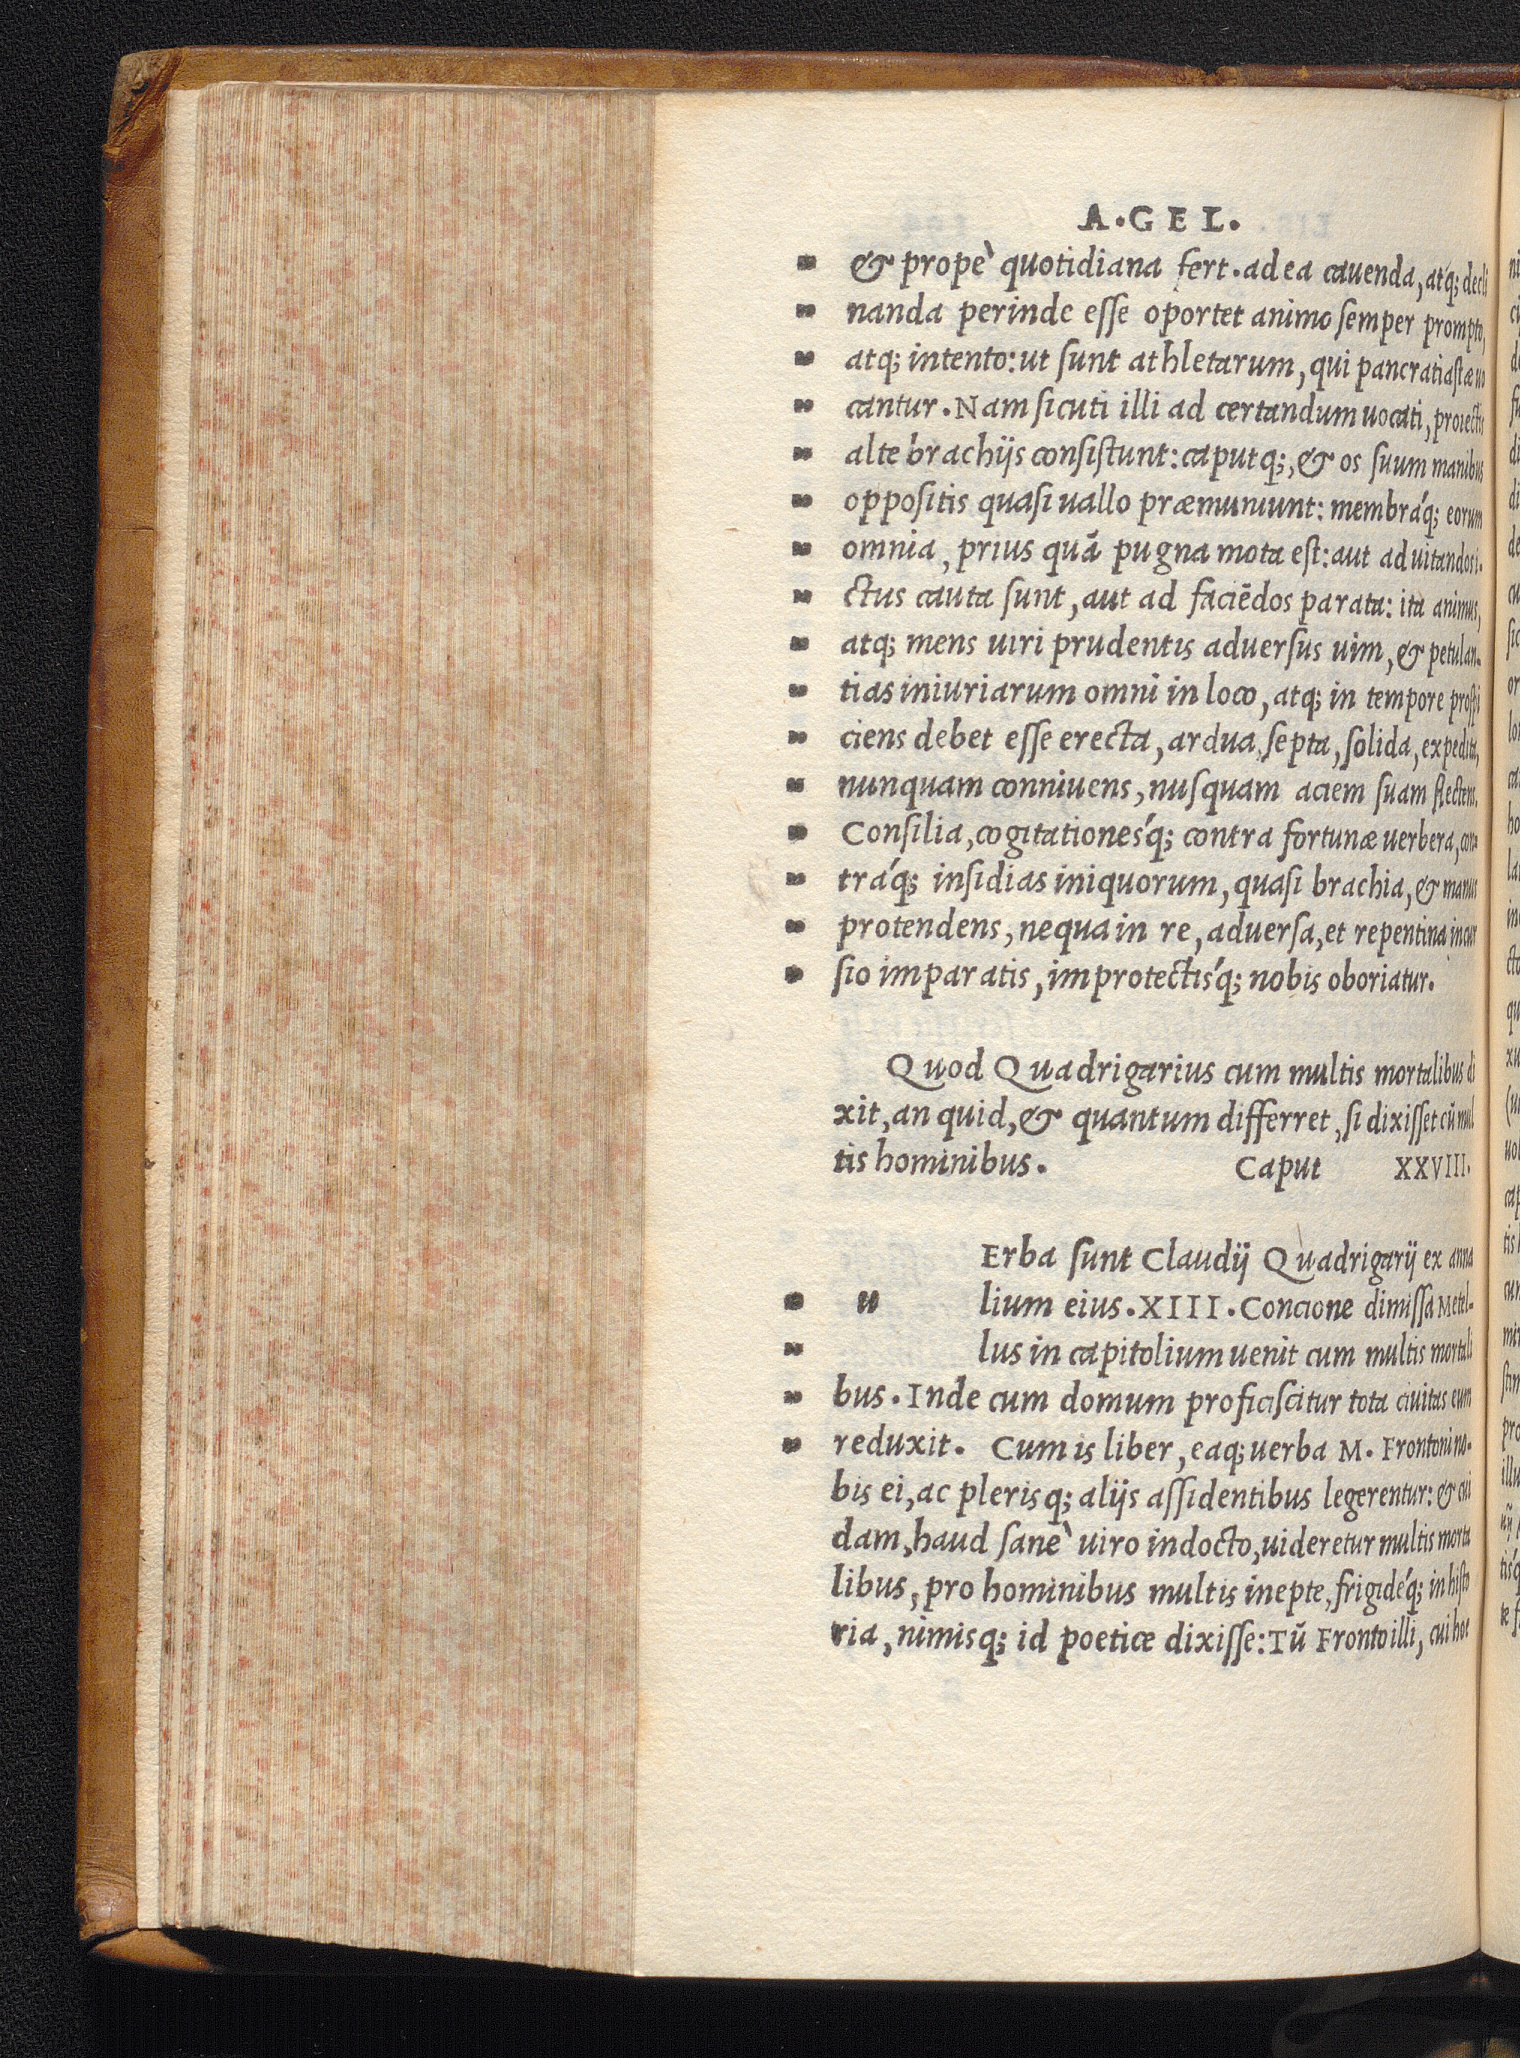 A.GEL.
" & propè quotidiana fert. ad ea cauenda, atq́; decli
" nanda perinde esse oportet animo semper prompto,
" atq; intento: ut sunt athletarum, qui pancratiastæ uo
" cantur. Nam sicuti illi ad certandum uocati, proiectis
" alte brachijs consistunt: caputq;, & os suum manibus
" oppositis quasi uallo præmuniunt: membráq; eorum
" omnia, prius quā pugna mota est: aut ad uitandos i-
" ctus cauta sunt, aut ad faciēdos parata: ita animus,
" atq; mens uiri prudentis aduersus uim, & petulan-
" tias iniuriarum omni in loco, atq; in tempore prospi
" ciens debet esse erecta, ardua, septa, solida, expedita,
" nunquam conniuens, nusquam aciem suam flectens.
" Consilia, cogitationesq́; contra fortunæ uerbera, con-
" tráq; insidias iniquorum, quasi brachia, & manus
" protendens, nequa in re, aduersa, et repentina incur
" sio imparatis, improtectisq́; nobis oboriatur.
Quod Quadrigarius cum multis mortalibus di
xit, an quid, & quantum differret, si dixisset cū mul
tis hominibus. Caput XXVIII.
Erba sunt Claudij Quadrigarij ex anna
" u lium eius. XIII. Concione dimissa Metel-
" lus in capitolium uenit cum multis mortali
" bus. Inde cum domum proficiscitur tota ciuitas eum
" reduxit. Cum is liber, eaq; uerba M. Frontoni no-
bis ei, ac plerisq; alijs assidentibus legerentur: & cui
dam, haud sanè uiro indocto, uideretur multis morta
libus, pro hominibus multis inepte, frigidéq; in histo
ria, nimisq; id poetice dixisse: Tū Fronto illi, cui hoc